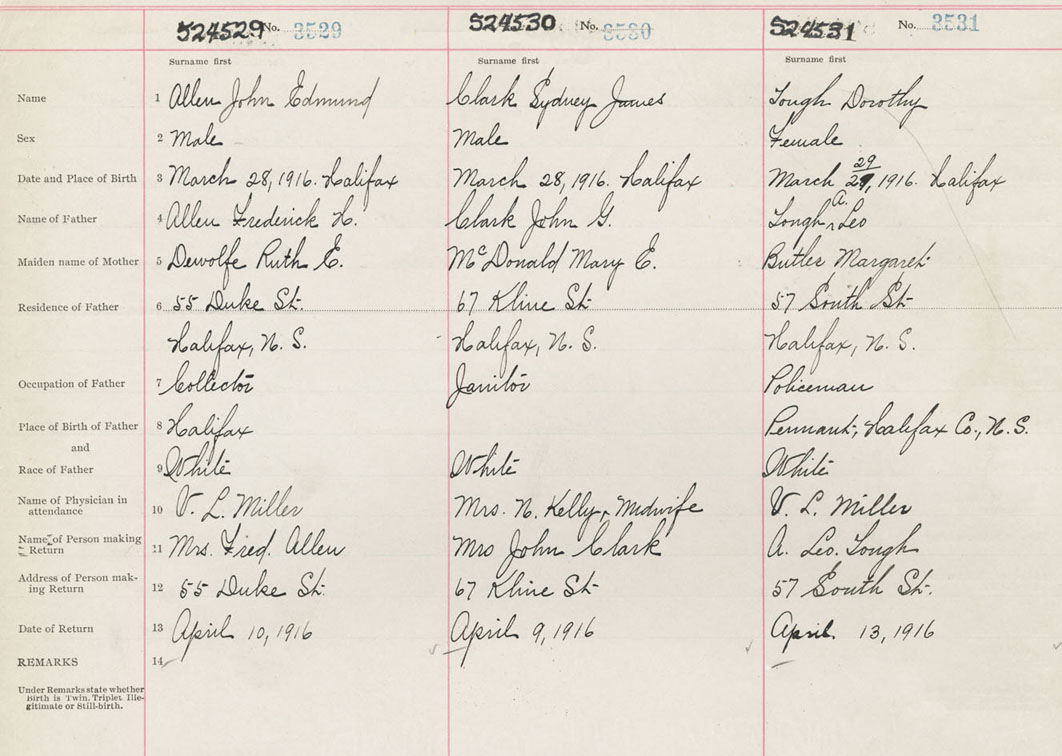 524529 No. 3529 524530 No. 3530 524531 No. 3531
Surname first Surname first Surname first
Name 1 Allen John Edmund Clark Sydney James Tough Dorothy
Sex 2 Male Male Female
29
Date and Place of Birth 3 March 28, 1916. Halifax March 28, 1916. Halifax March 29, 1916. Halifax
A.
Name of Father 4 Allen Frederick H. Clark John G. Tough Leo
Maiden name of Mother 5 Dewolfe Ruth E. McDonald Mary E. Butler Margaret
Residence of Father 6 55 Duke St. 67 Kline St 57 South St
Halifax, N. S. Halifax, N. S. Halifax, N. S.
Occupation of Father 7 Collector Janitor Policeman
Place of Birth of Father 8 Halifax Pennant, Halifax Co., N. S.
and
Race of Father 9 White White White
Name of Physician in
attendance 10 V. L. Miller Mrs. N. Kelly, Midwife V. L. Miller
Name of Person making
Return 11 Mrs. Fred. Allen Mrs John Clark A. Leo. Tough
Address of Person mak-
ing Return 12 55 Duke St. 67 Kline St 57 South St.
Date of Return 13 April 10, 1916 April 9, 1916 April. 13, 1916
REMARKS 14
Under Remarks state whether
Birth is Twin. Triplet Ille-
gitimate or Still-birth.